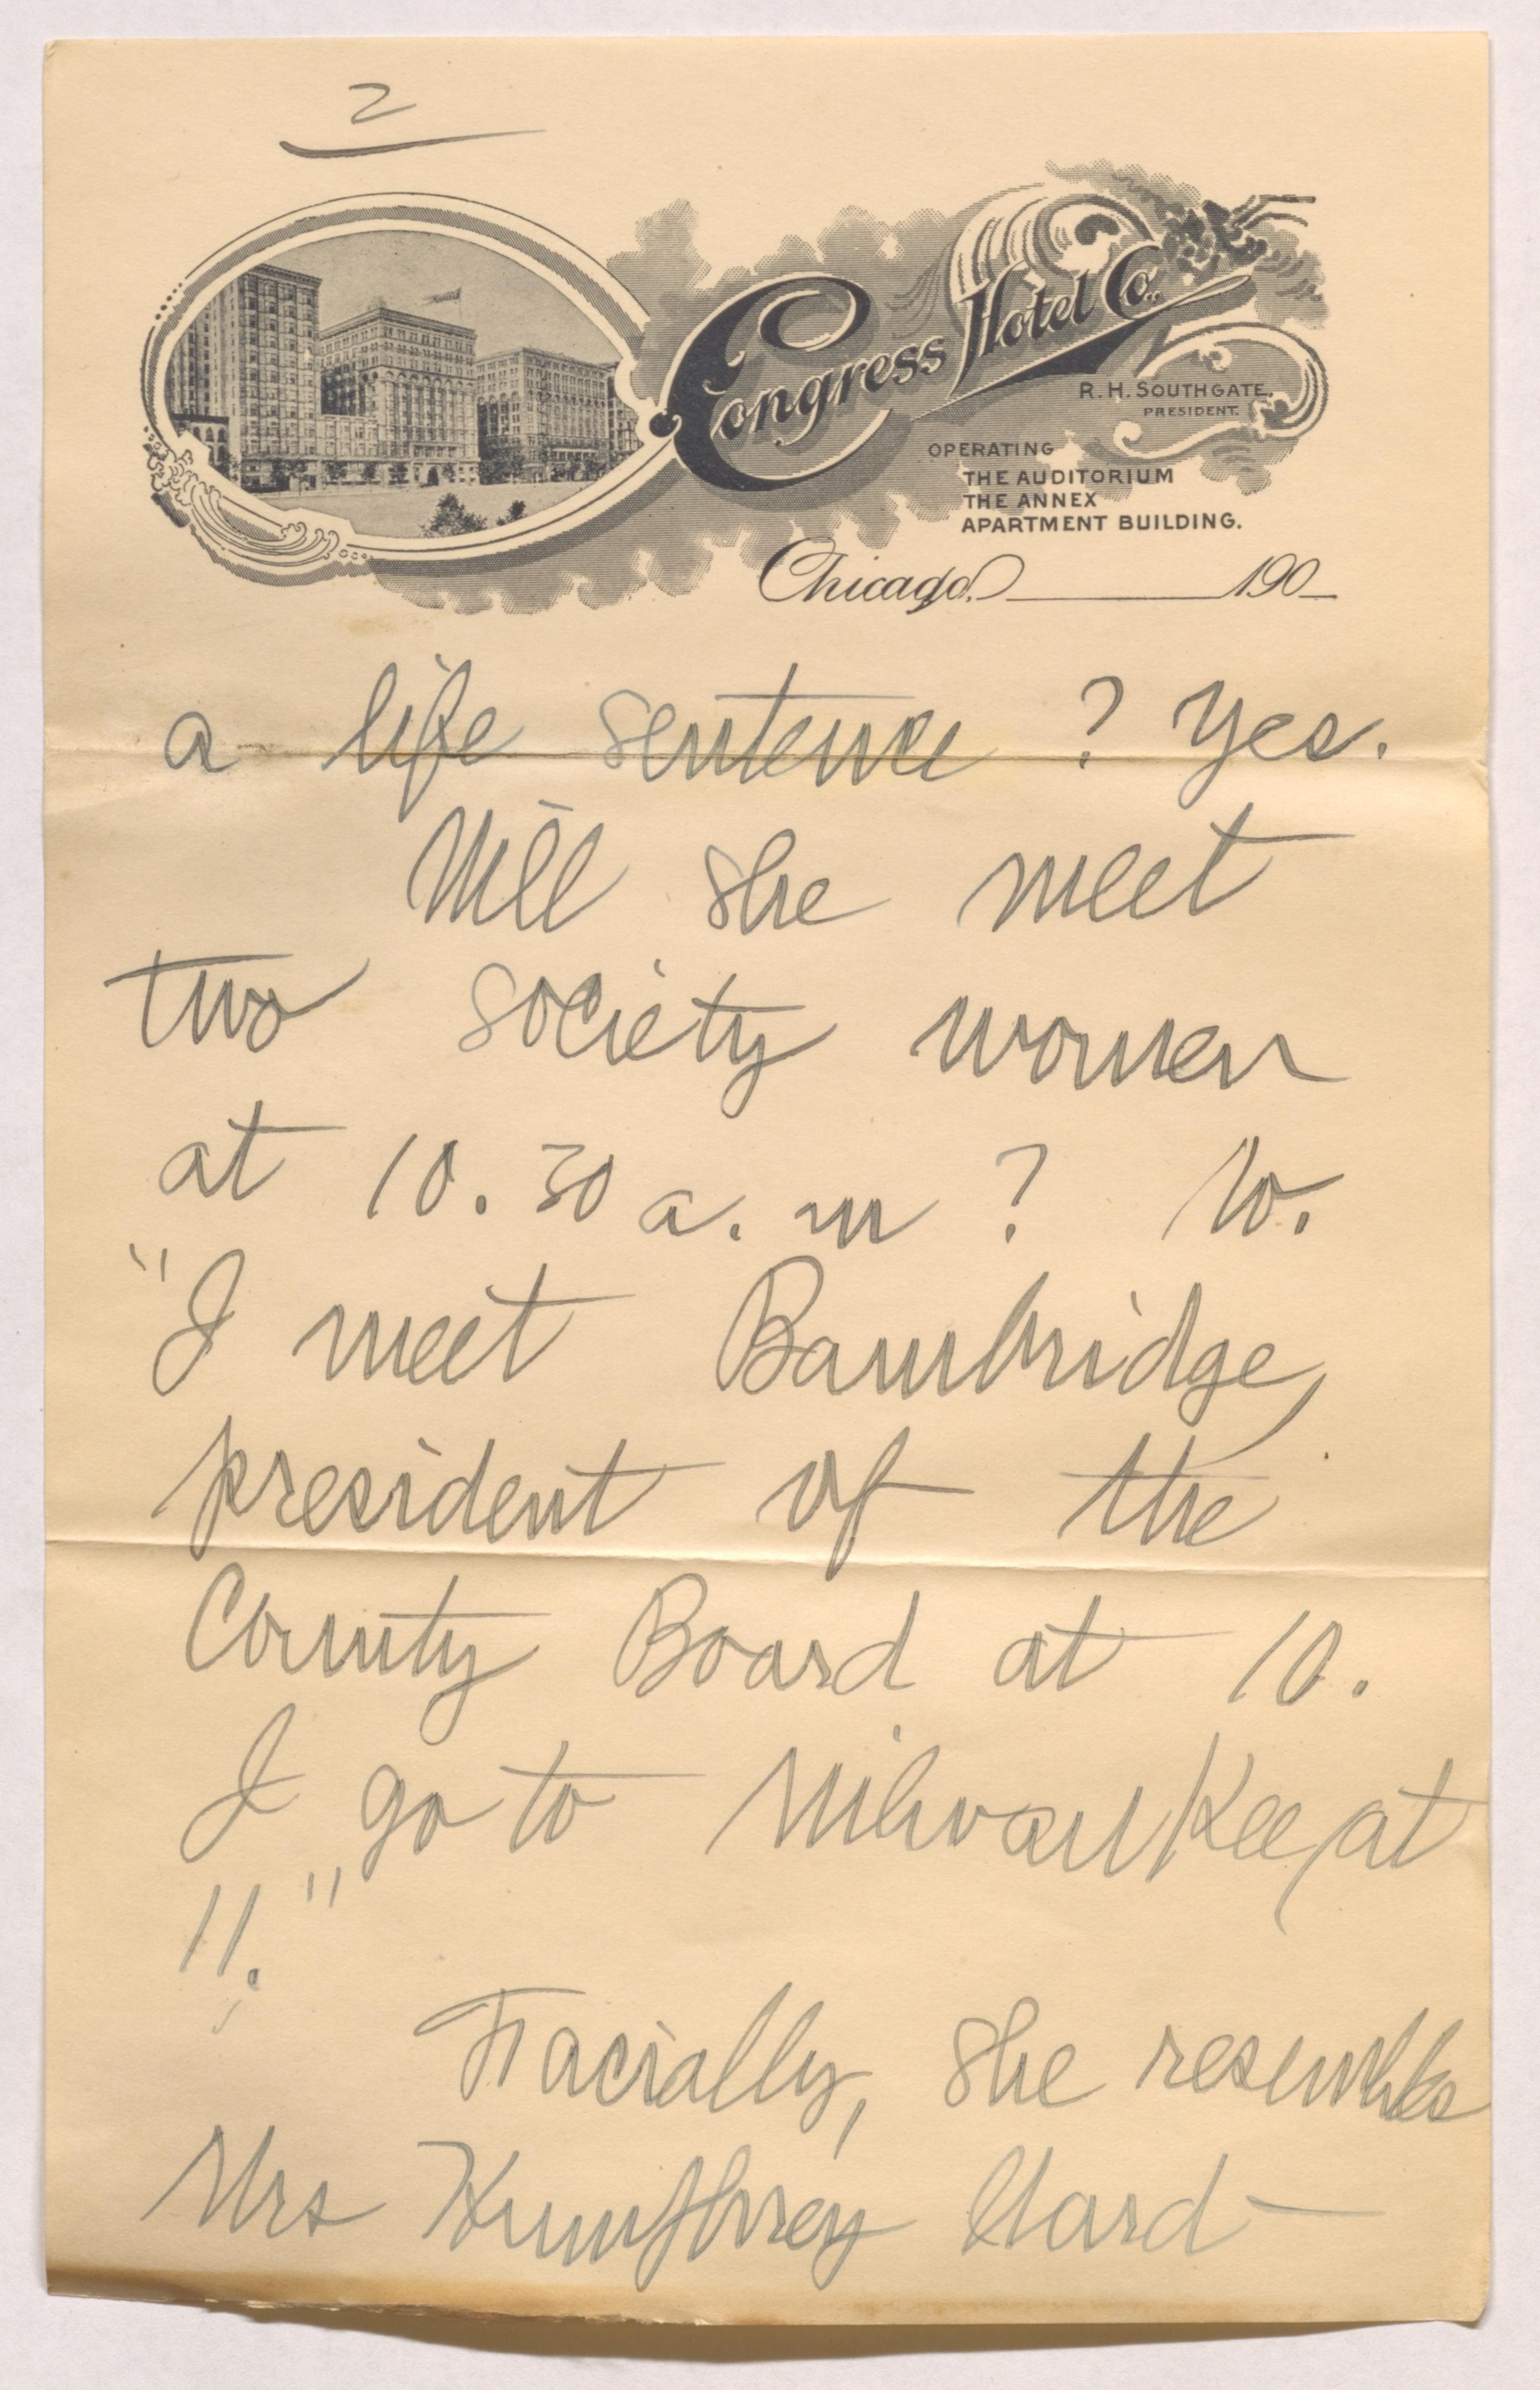 2
Congress Hotel Co.
R. H. SOUTHGATE,
PRESIDENT.
OPERATING
THE AUDITORIUM
THE ANNEX
APARTMENT BUILDING.
Chicago, 190
a life sentence? Yes.
Will she meet
two society women
at 10.30 a. m? No.
"I meet Bambridge,
president of the
County Board at 10.
I go to Milwaukee, at
11."
Facially, she resembles
Mrs Humphrey Ward—